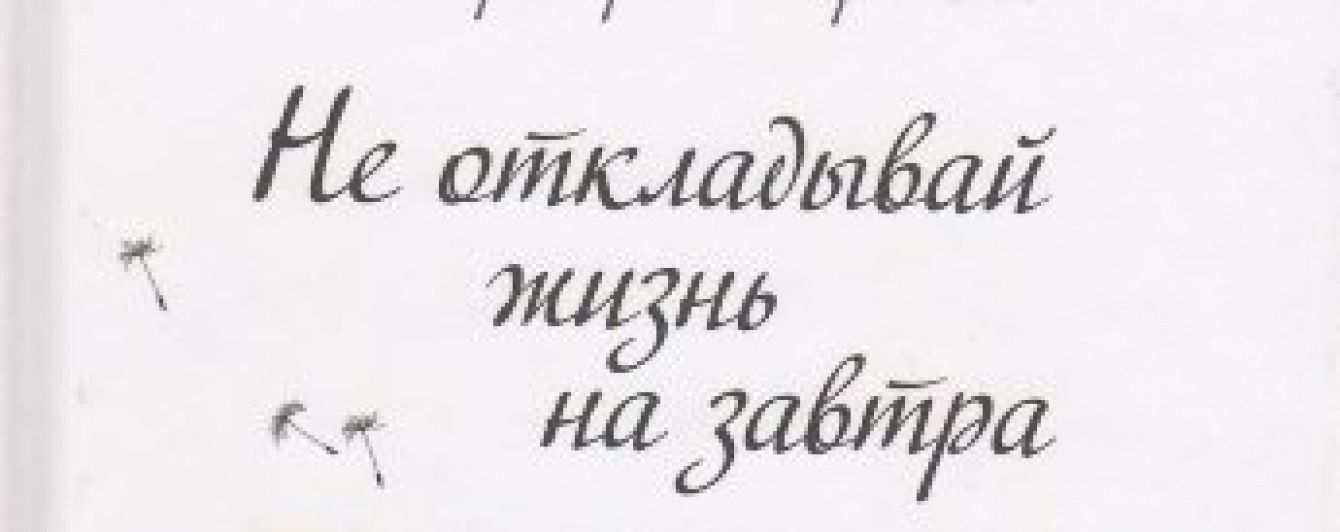 Не откладывай
жизнь
на завтра